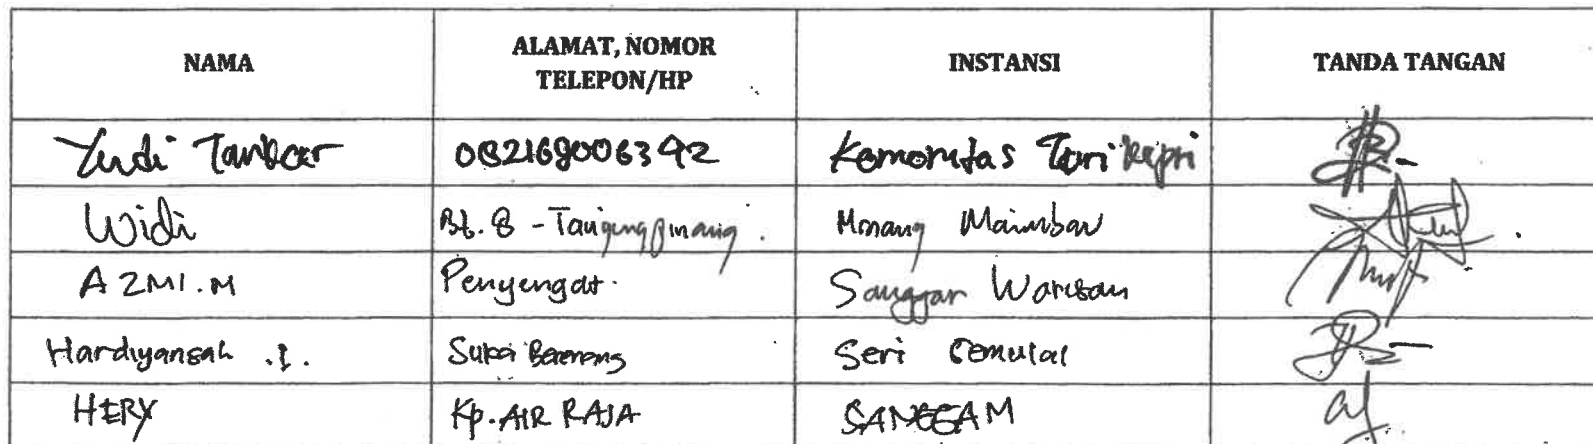 NAMA
ALAMAT, NOMOR
TELEPON/HP
INSTANSI
TANDA TANGAN
Yudi Tanbear 082169006392 Komonitas Tari Kepri
Widi Bt. 8 - Tanjungpinang . Minang Maimbau
AZMI.M Penyengat. Sanggar Warisan
Hardiyansah .I. Seri
HERY Kp. AIR RAJA SANGGAM